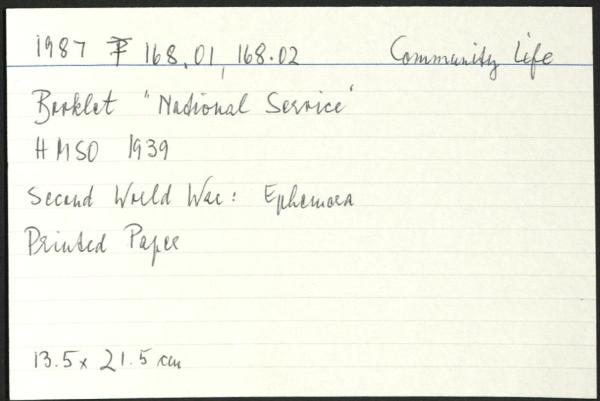 1987 F 168.01, 168.02 Community Life
Booklet "National Service"
HMSO 1939
Second World War: Ephemera
Printed Paper
13.5 x 21.5 cm